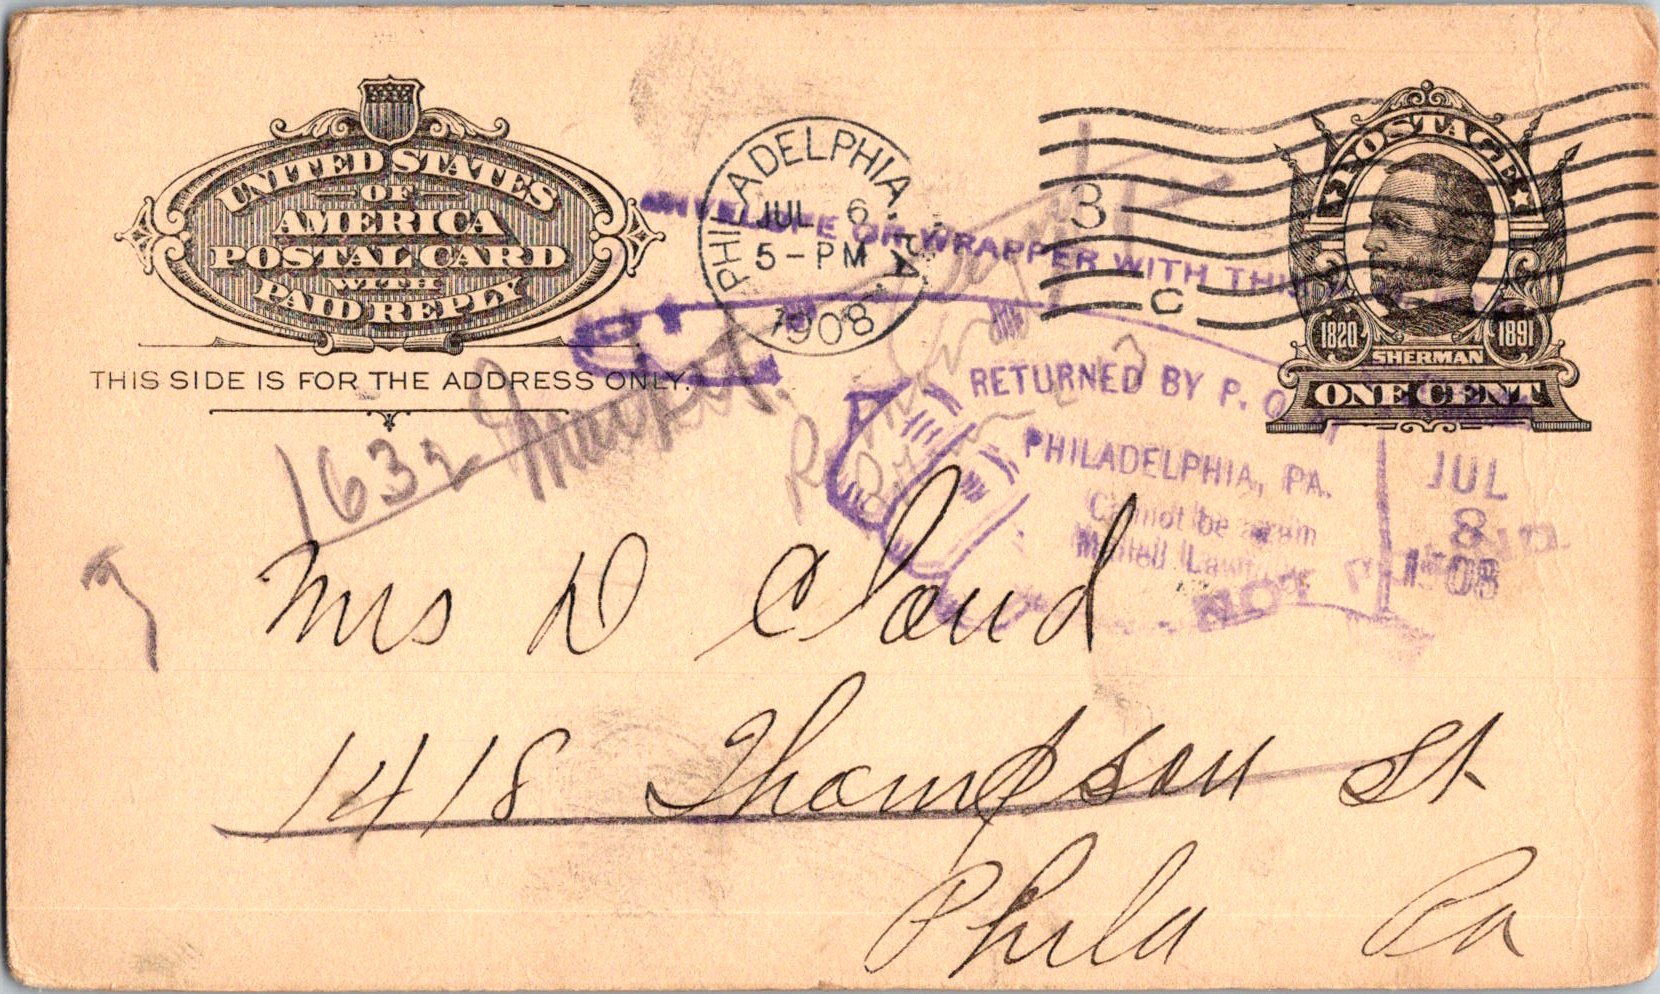 UNITED STATES
OF
AMERICA
POSTAL CARD
WITH
PAID REPLY
THIS SIDE IS FOR THE ADDRESS ONLY.
PHILADELPHIA, PA.
JUL 6
5-PM
1908
3
C
POSTAGE
1820 1891
SHERMAN
ONE CENT
OR WRAPPER WITH THIS
RETURNED BY P. O.
PHILADELPHIA, PA.
Cannot be again
Mailed
JUL
8
1908
NOT
1632
Mrs D Cloud
1418 Thompson St
Phila Pa